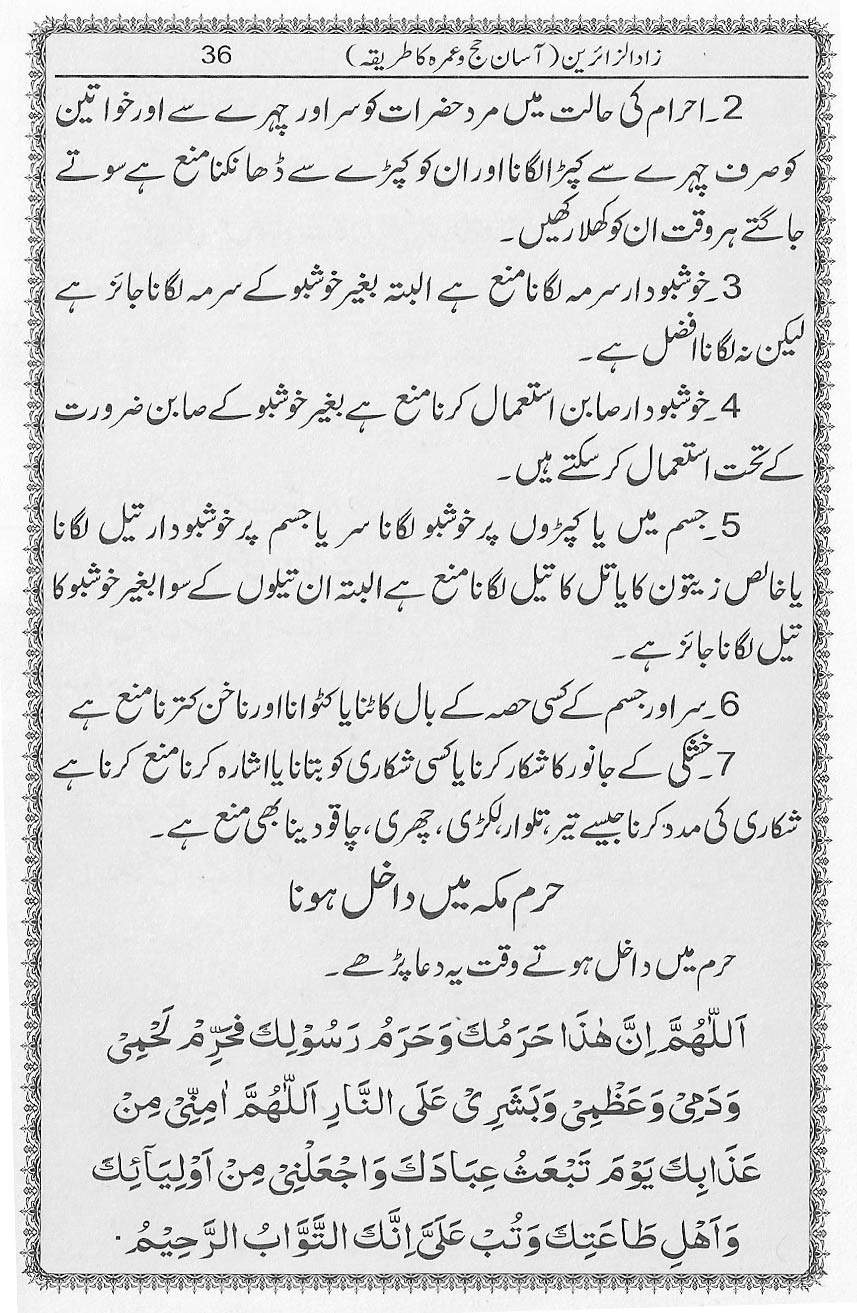 زاد الزائرین (آسان حج و عمرہ کا طریقہ) 36
2۔احرام کی حالت میں مرد حضرات کو سر اور چہرے سے اور خواتین
کو صرف چہرے سے کپڑا لگانا اور ان کو کپڑے سے ڈھانکنا منع ہے سوتے
جاگتے ہر وقت ان کو کھلا رکھیں۔
3۔خوشبودار سرمہ لگانا منع ہے البتہ بغیر خوشبو کے سرمہ لگانا جائز ہے
لیکن نہ لگانا افضل ہے۔
4۔خوشبودار صابن استعمال کرنا منع ہے بغیر خوشبو کے صابن ضرورت
کے تحت استعمال کر سکتے ہیں۔
5۔جسم میں یا کپڑوں پر خوشبو لگانا سر یا جسم پر خوشبودار تیل لگانا
یا خالص زیتون کا یا تل کا تیل لگانا منع ہے البتہ ان تیلوں کے سوا بغیر خوشبو کا
تیل لگانا جائز ہے۔
6۔سر اور جسم کے کسی حصہ کے بال کاٹنا یا کٹوانا اور ناخن کترنا منع ہے
7۔خشکی کے جانور کا شکار کرنا یا کسی شکاری کو بتانا یا اشارہ کرنا منع کرنا ہے
شکاری کی مدد کرنا جیسے تیر، تلوار، لکڑی، چھری، چاقو دینا بھی منع ہے۔
حرم مکہ میں داخل ہونا
حرم میں داخل ہوتے وقت یہ دعا پڑھے۔
اَللّٰهُمَّ اِنَّ هٰذَا حَرَمُكَ وَحَرَمُ رَسُوْلِكَ فَحَرِّمْ لَحْمِيْ
وَدَمِيْ وَعَظْمِيْ وَبَشَرِيْ عَلَى النَّارِ اَللّٰهُمَّ اٰمِنِّيْ مِنْ
عَذَابِكَ يَوْمَ تَبْعَثُ عِبَادَكَ وَاجْعَلْنِيْ مِنْ اَوْلِيَآئِكَ
وَاَهْلِ طَاعَتِكَ وَتُبْ عَلَيَّ اِنَّكَ التَّوَّابُ الرَّحِيْمُ۔